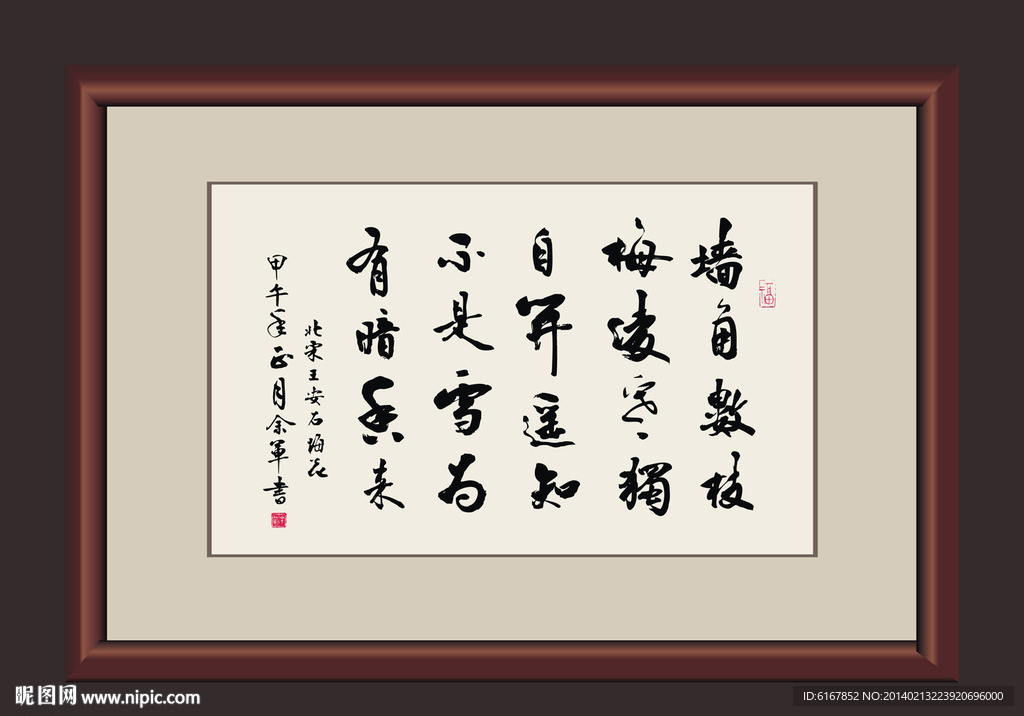 福
墙角數枝
梅凌寒獨
自開遥知
不是雪为
有暗香来
北宋王安石梅花
甲午年正月余軍書
昵图网 www.nipic.com
ID:6167852 NO:20140213223920696000